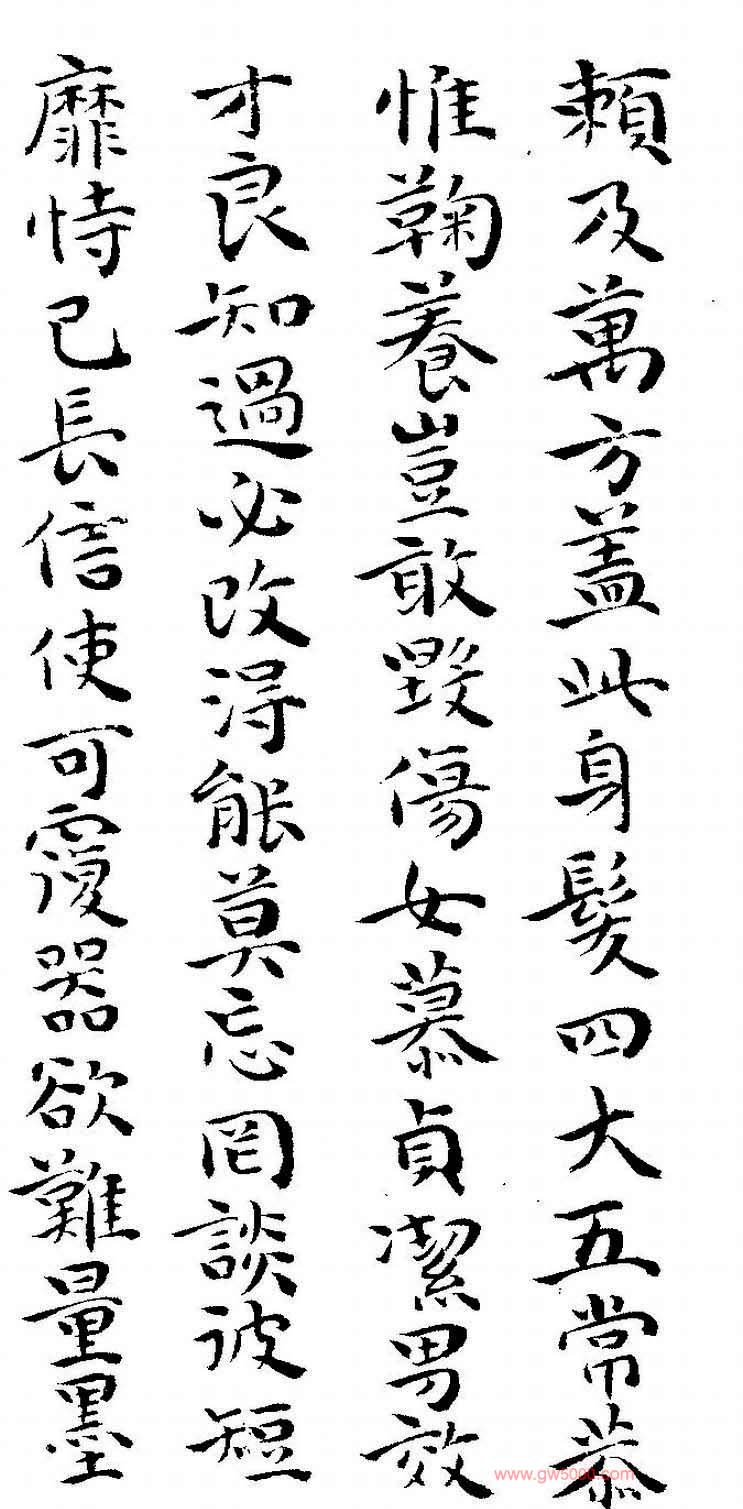 賴及萬方蓋此身髮四大五常恭
惟鞠養豈敢毀傷女慕貞潔男效
才良知過必改得能莫忘罔談彼短
靡恃己長信使可覆器欲難量墨
www.gw5000.com